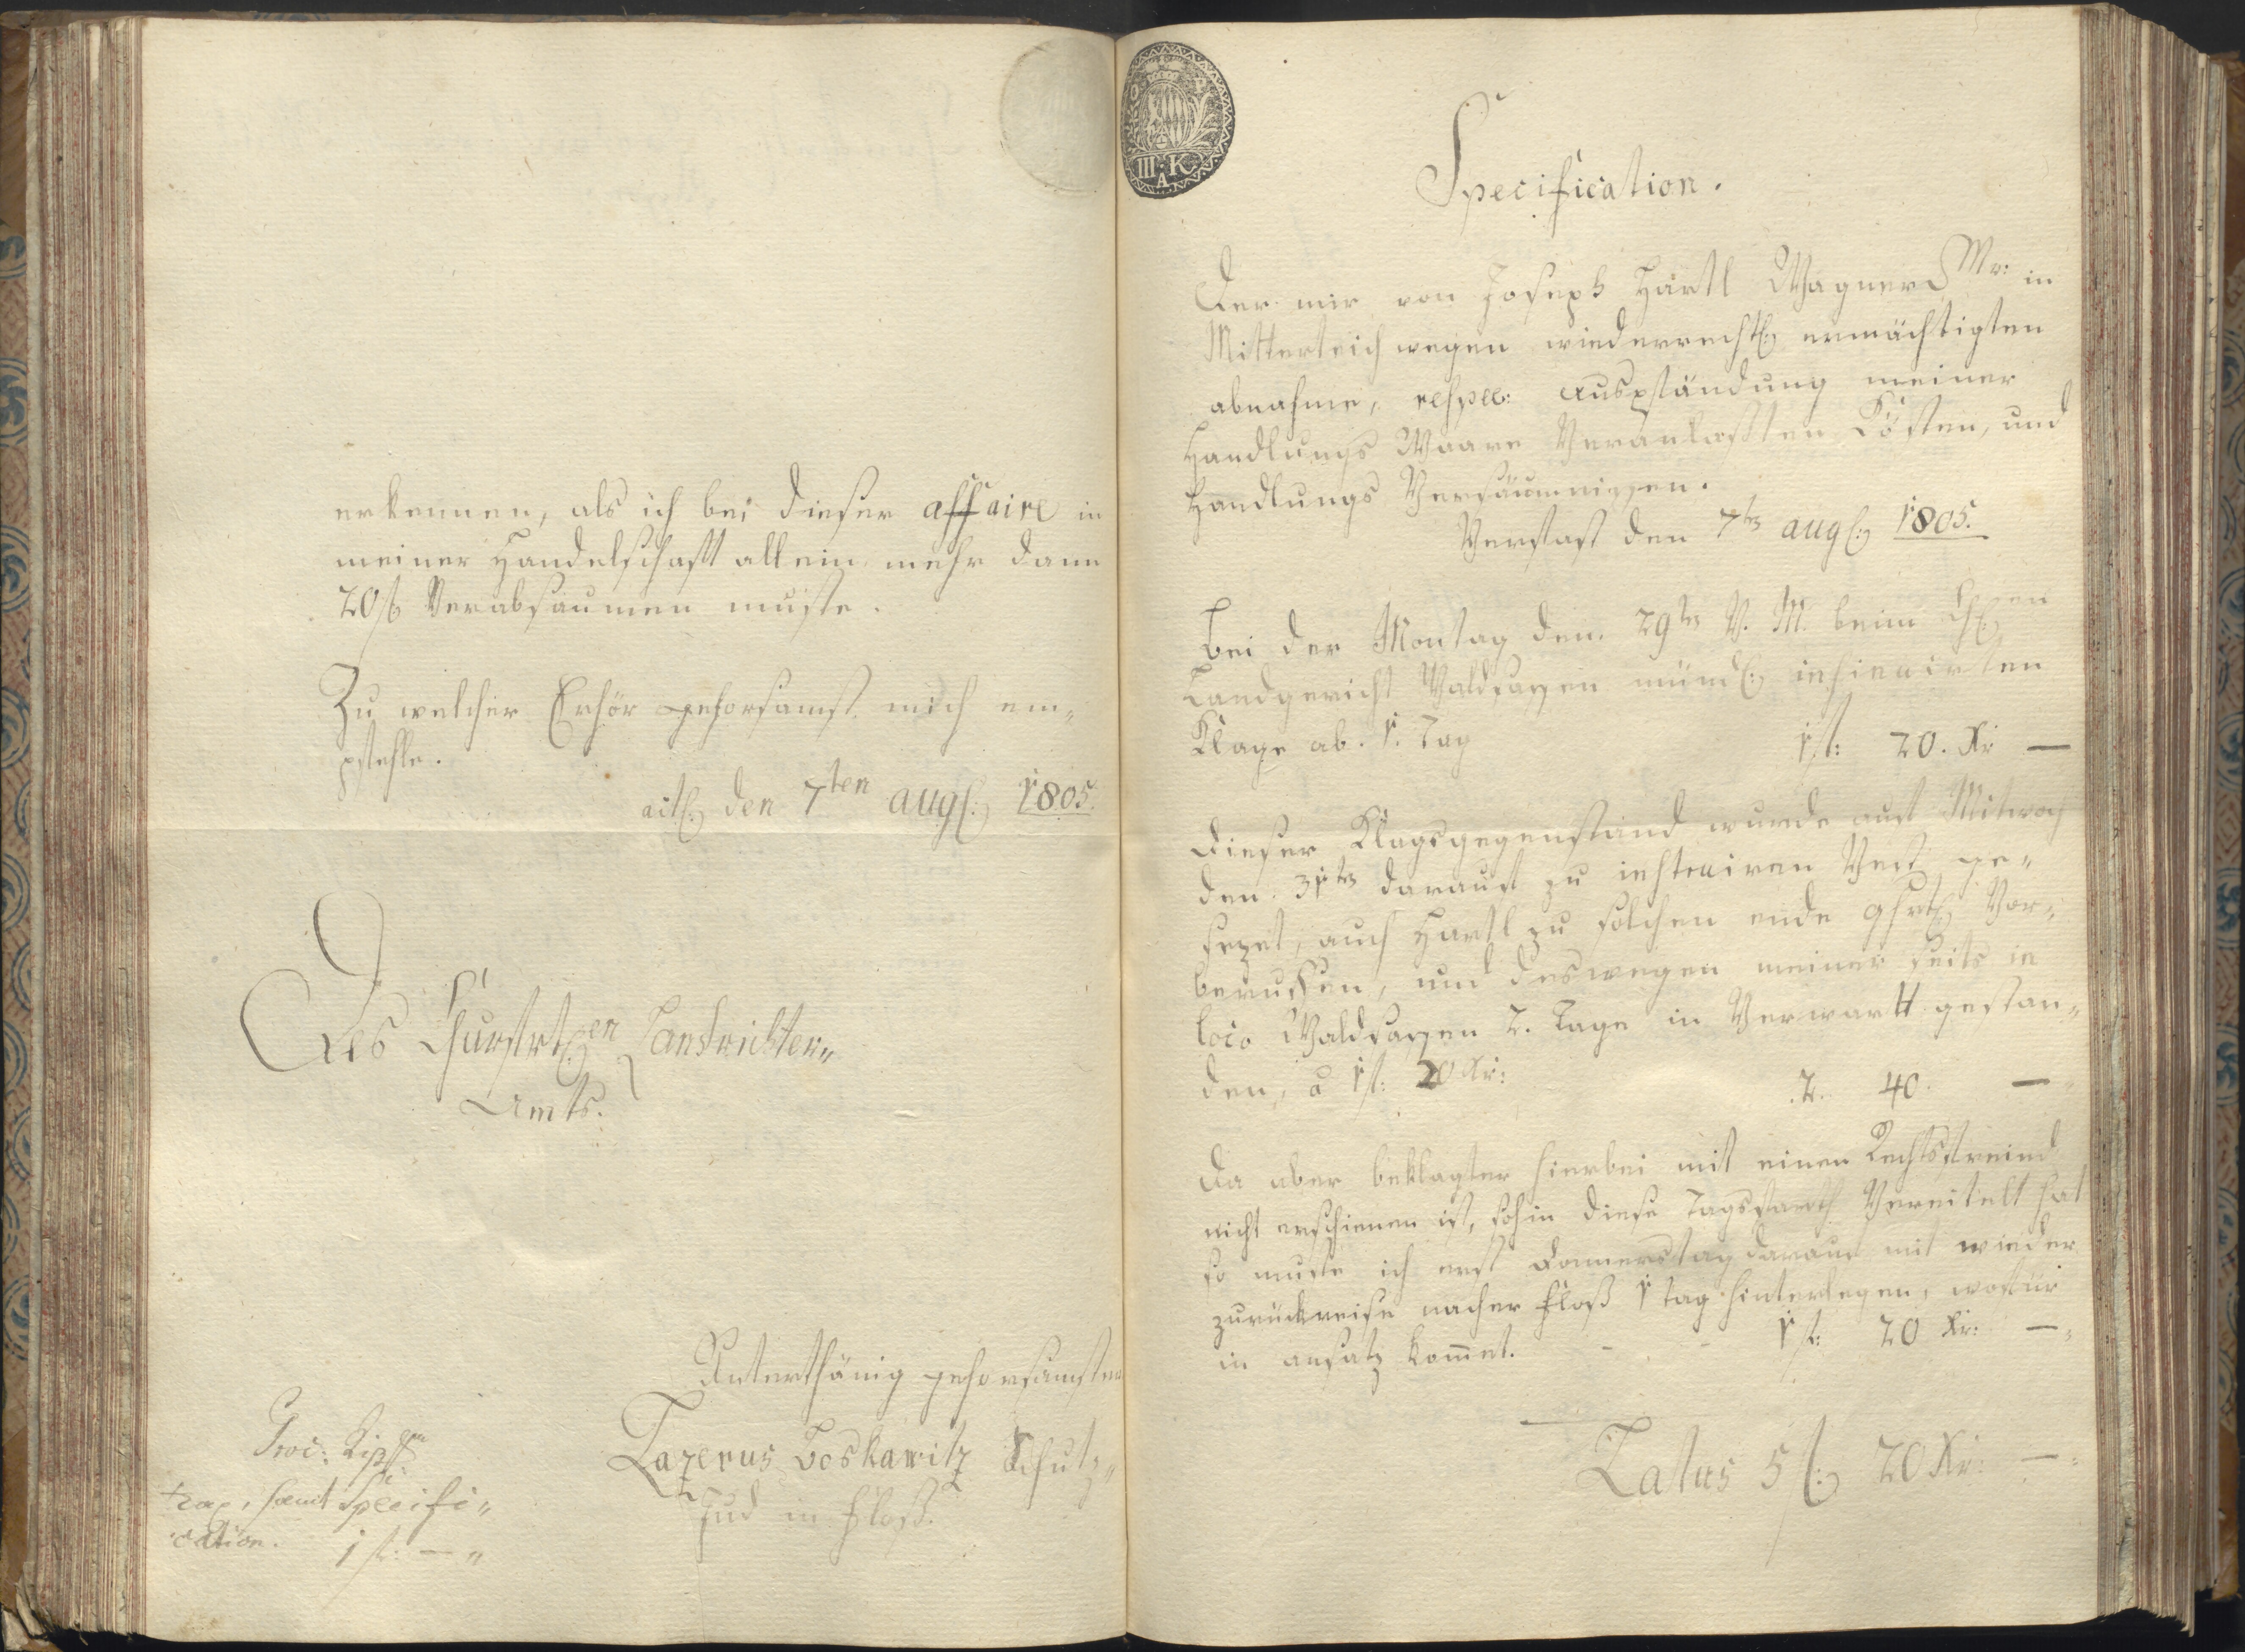 erkennen, als ich bei dieser affaire in
meiner Handelschaft allein mehr dann
20 f verabsaumen muste.
Zu welcher Erhör gehorsamst mich em„
pfehle.
act. den 7ten aug: 1805.
Des Churfrtl:en Landrichter„
Amts.
Unterthänig gehorsamster
Lazerus Boskawitz Schutz„
Jud in Floß.
Proc:
samt specifi„
cation. 1 fl: — „
III K
A
Specification.
Der mir von Joseph Härtl Wagner Mr: in
Mitterteich wegen wiederrechtl: ermächtigten
abnahme, respec: auspfändung meiner
Handlungs Waare Veranlaßten Kösten, und
Handlungs Versäumnissen.
Verfast den 7ten aug: 1805.
Bei der Montag den 29ten V. M. beim Ch:en
Landgericht Waldsassen mündl: insinuirten
Klage ab. 1. Tag 1 fl: 20. Kr —
Dieser Klagsgegenstand wurde auf Mitwoch
den 31ten darauf zu instruiren Vest ge„
sezet, auch Härtl zu solchen ende ghrtl: Vor„
beruffen, und deswegen meiner seits in
loco Waldsassen 2. Tage in Verwartt gestan„
den, à 1 fl: 20 Kr: 2. 40. —
Da aber beklagter hierbei mit einen Rechtsfreund
nicht erschienen ist, sohin diese Tagsfarth Vereitelt hat
so muste ich erst Donnerstag darauf mit wieder
zurückreise nacher Floß 1 tag hinterlegen, wofür
in ansatz kommet. - - 1 fl: 20 Kr: —
Latus 5 fl: 20 Kr: —